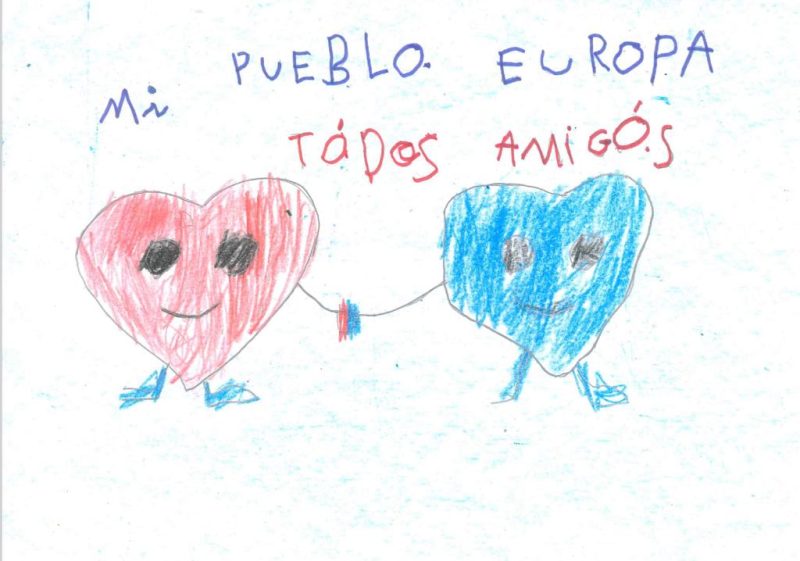 Mi PUEBLO. EUROPA
TÓDOS AMiGÓS